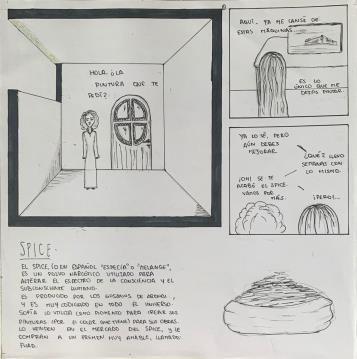 HOLA. ¿LA
PINTURA QUE TE
PEDÍ?
AQUÍ. YA ME CANSÉ DE
ESTAS MÁQUINAS...
ES LO
ÚNICO QUE ME
DEJAS PINTAR.
YA LO SÉ, PERO
AÚN DEBES
MEJORAR.
¿QUÉ? LLEVO
SEMANAS CON
LO MISMO.
¡OH! SE TE
ACABÓ EL SPICE.
VAMOS POR
MÁS.
¡PERO!...
SPICE.
EL SPICE, (O EN ESPAÑOL "ESPECIA" O "MELANGE",
ES UN POLVO NARCÓTICO UTILIZADO PARA
ALTERAR EL ESPECTRO DE LA CONSCIENCIA Y EL
SUBCONSCIENTE HUMANO.
ES PRODUCIDO POR LOS GUSANOS DE
Y ES MUY CODICIADO EN TODO EL UNIVERSO.
SOFÍA LO UTILIZA COMO PIGMENTO PARA CREAR SUS
PINTURAS (POR EL COLOR QUE TIENE) PARA SUS OBRAS.
LO VENDEN EN EL MERCADO DEL SPICE, Y LE
COMPRAN A UN FREMEN MUY AMABLE, LLAMADO